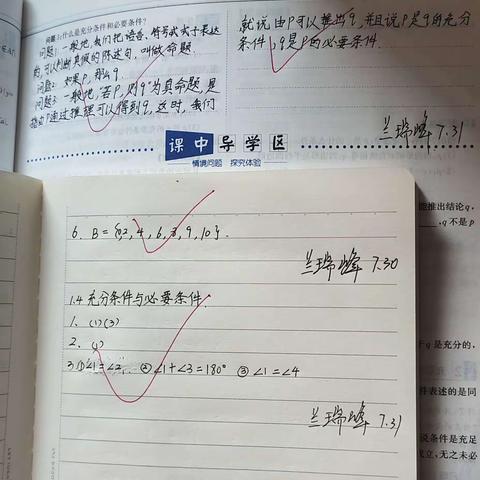 问题1:什么是充分条件和必要条件?
问题1:一般地,我们把用语言、符号或式子表达
的,可以判断真假的陈述句,叫做命题.
问题2:如果P,那么q
问题3:一般地,“若P,则q”为真命题,是
指由P通过推理可以得到q,这时,我们
就说,由P可以推出q,并且说P是q的充分
条件,q是P的必要条件.
兰瑞峰 7.31
课中导学区
情境问题 探究体验
能推出结论q,
,q不是p
6. B = {0,2, 4, 6, 8, 9, 10}.
兰瑞峰 7.30
1.4 充分条件与必要条件.
1. (1)(3)
2. (1)
3.①∠1=∠2. ②∠1+∠3=180° ③∠1=∠4
兰瑞峰 7.31
q是充分的,
件表述的是同
说条件是充足
成立,无之未必